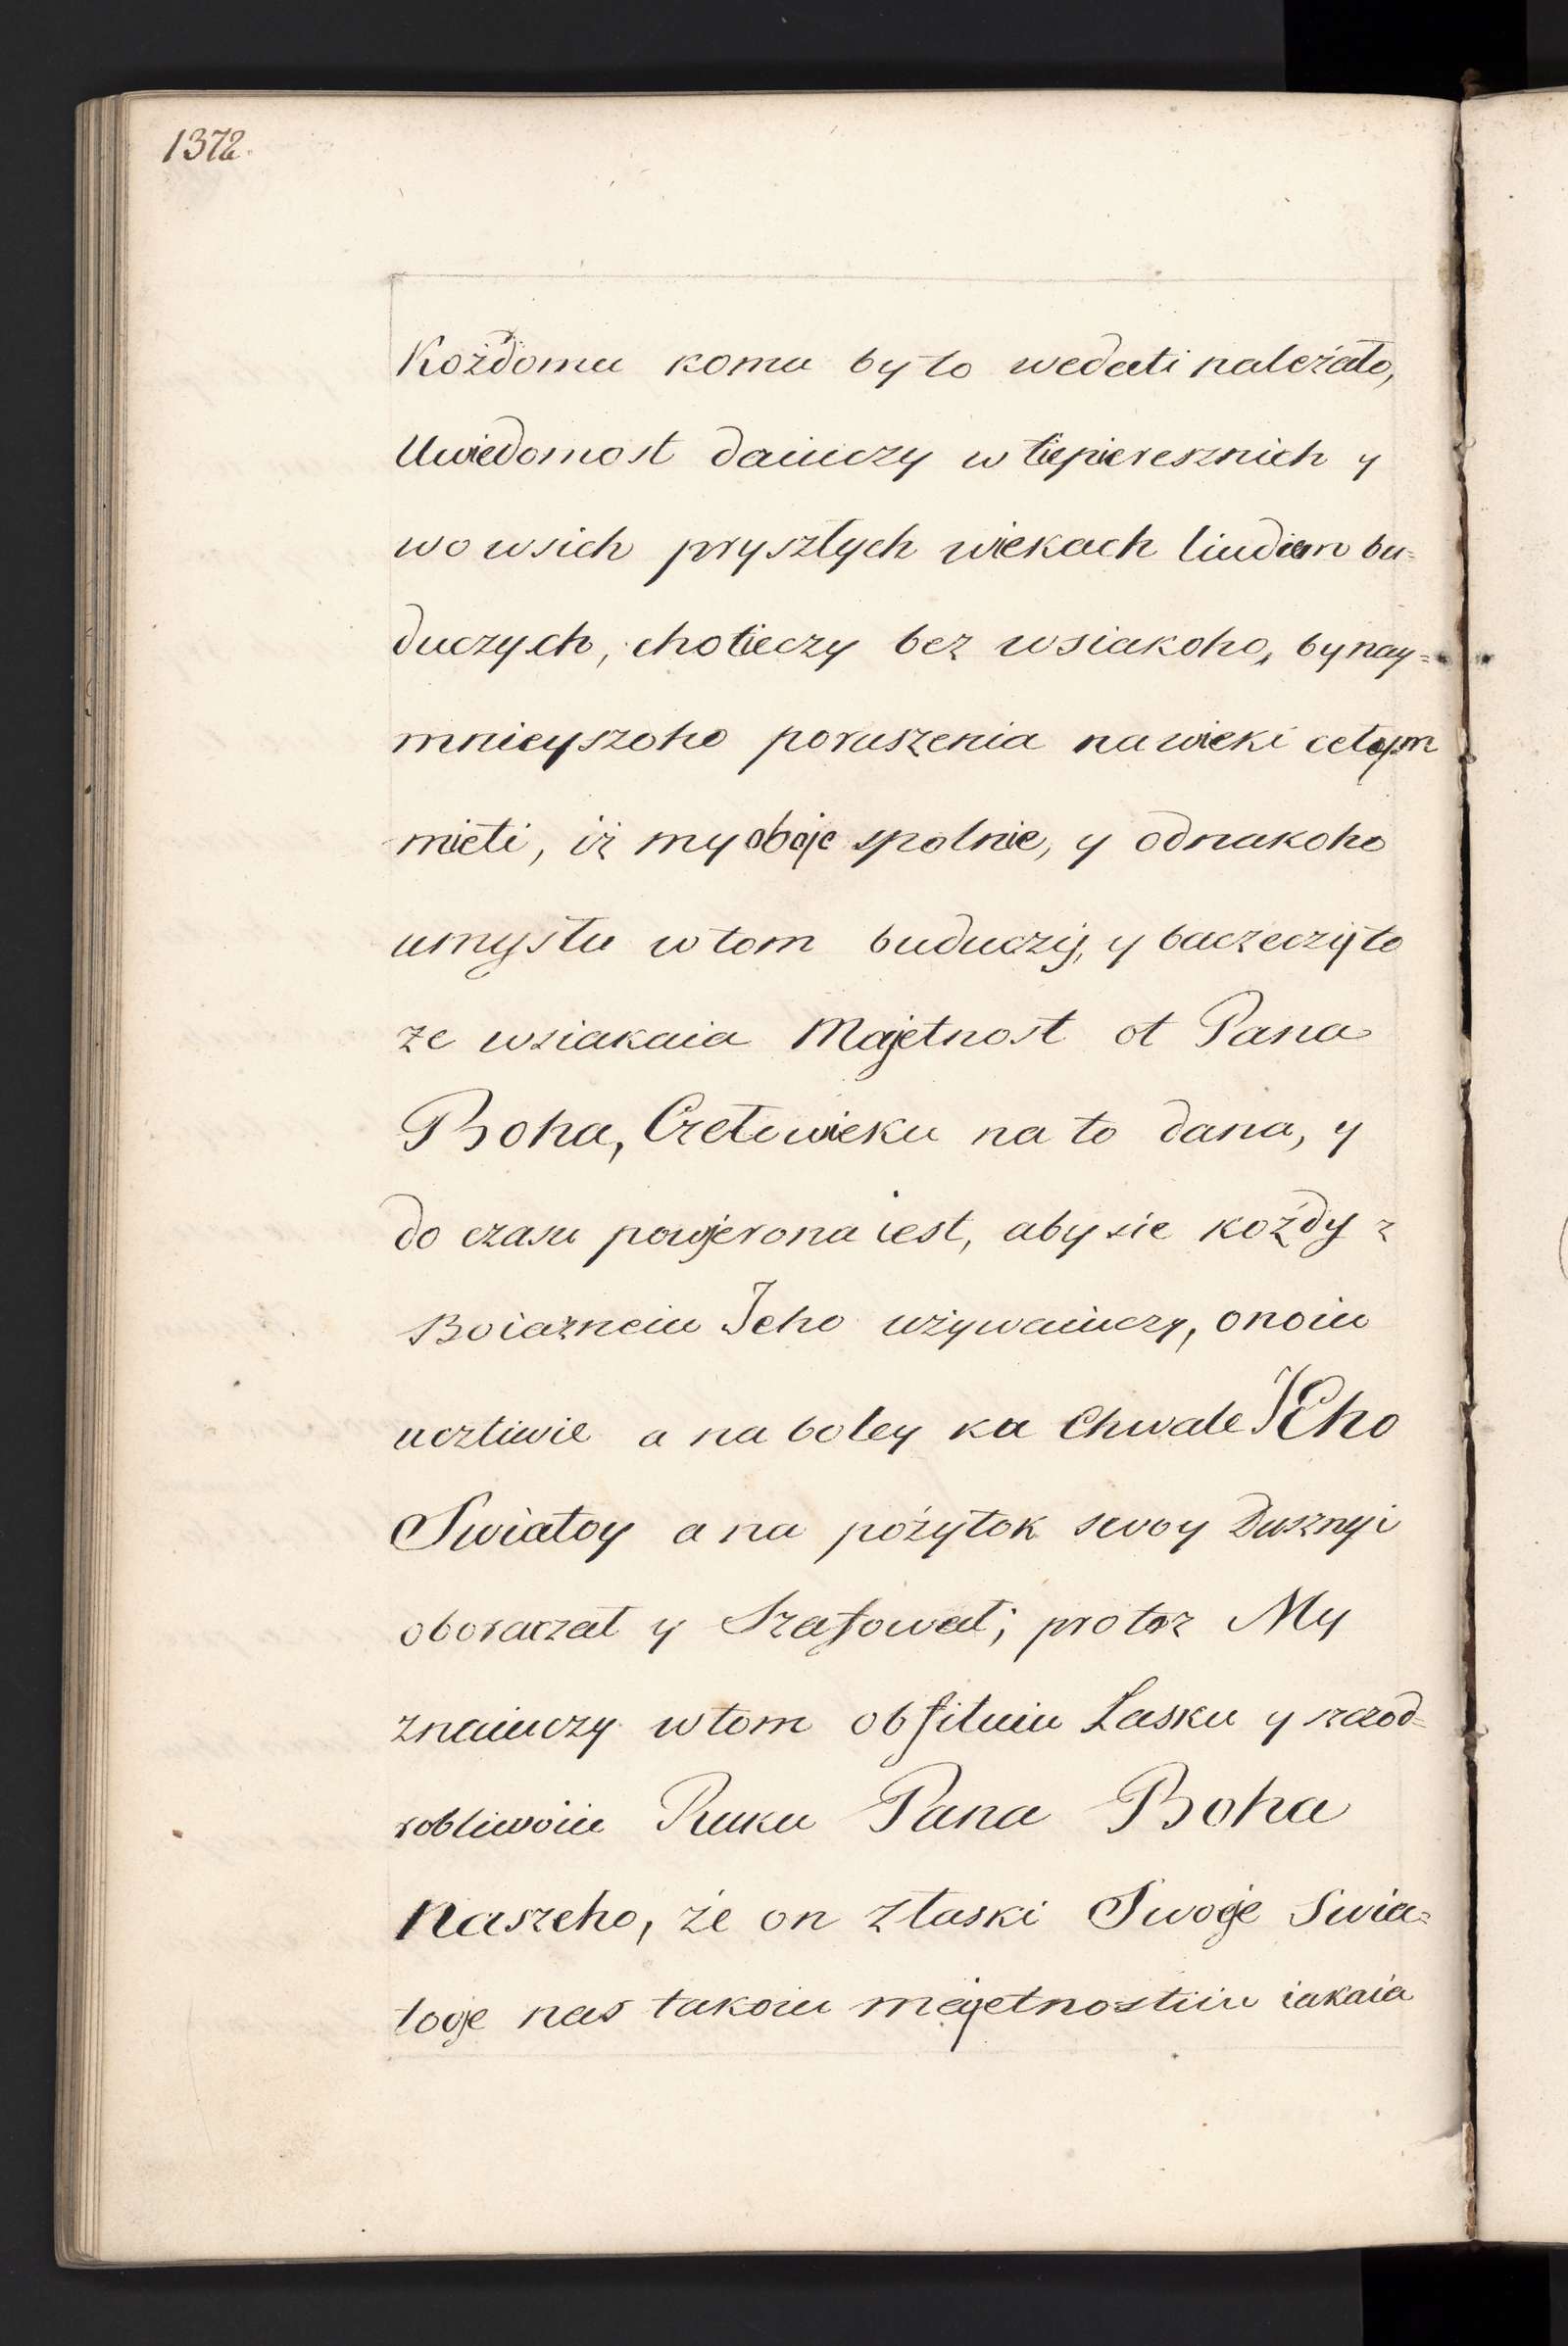 1372.
Kożdomu komu byto wedati należało,
Uwiedomost daiuczy w tiepieresznich y
wo wsich pryszłych wiekach liudiem bu=
duczych, chotieczy bez wsiakoho, bynay=
mnieyszoho poruszenia na wieki cełym
mieti, iż my oboje spolnie, y odnakoho
umysłu w tom buduczy, y baczeczy to
ze wsiakaia Majetnost ot Pana
Boha, Czełowieku na to dana, y
do czasu powjerona iest, aby sie kożdy z
Boiazneiu Jeho używaiuczy, onoiu
ucztiwie a na boley ku Chwale JEho
Swiatoy a na pożytok swoy Dusznyi
oboraczał y Szafował; protoz My
znaiuczy w tom obfituiu Łasku y szczod=
robliwoiu Ruku Pana Boha
Naszeho, że on z łaski Swoje Swia=
toje nas takoiu majetnostiiu iakaia